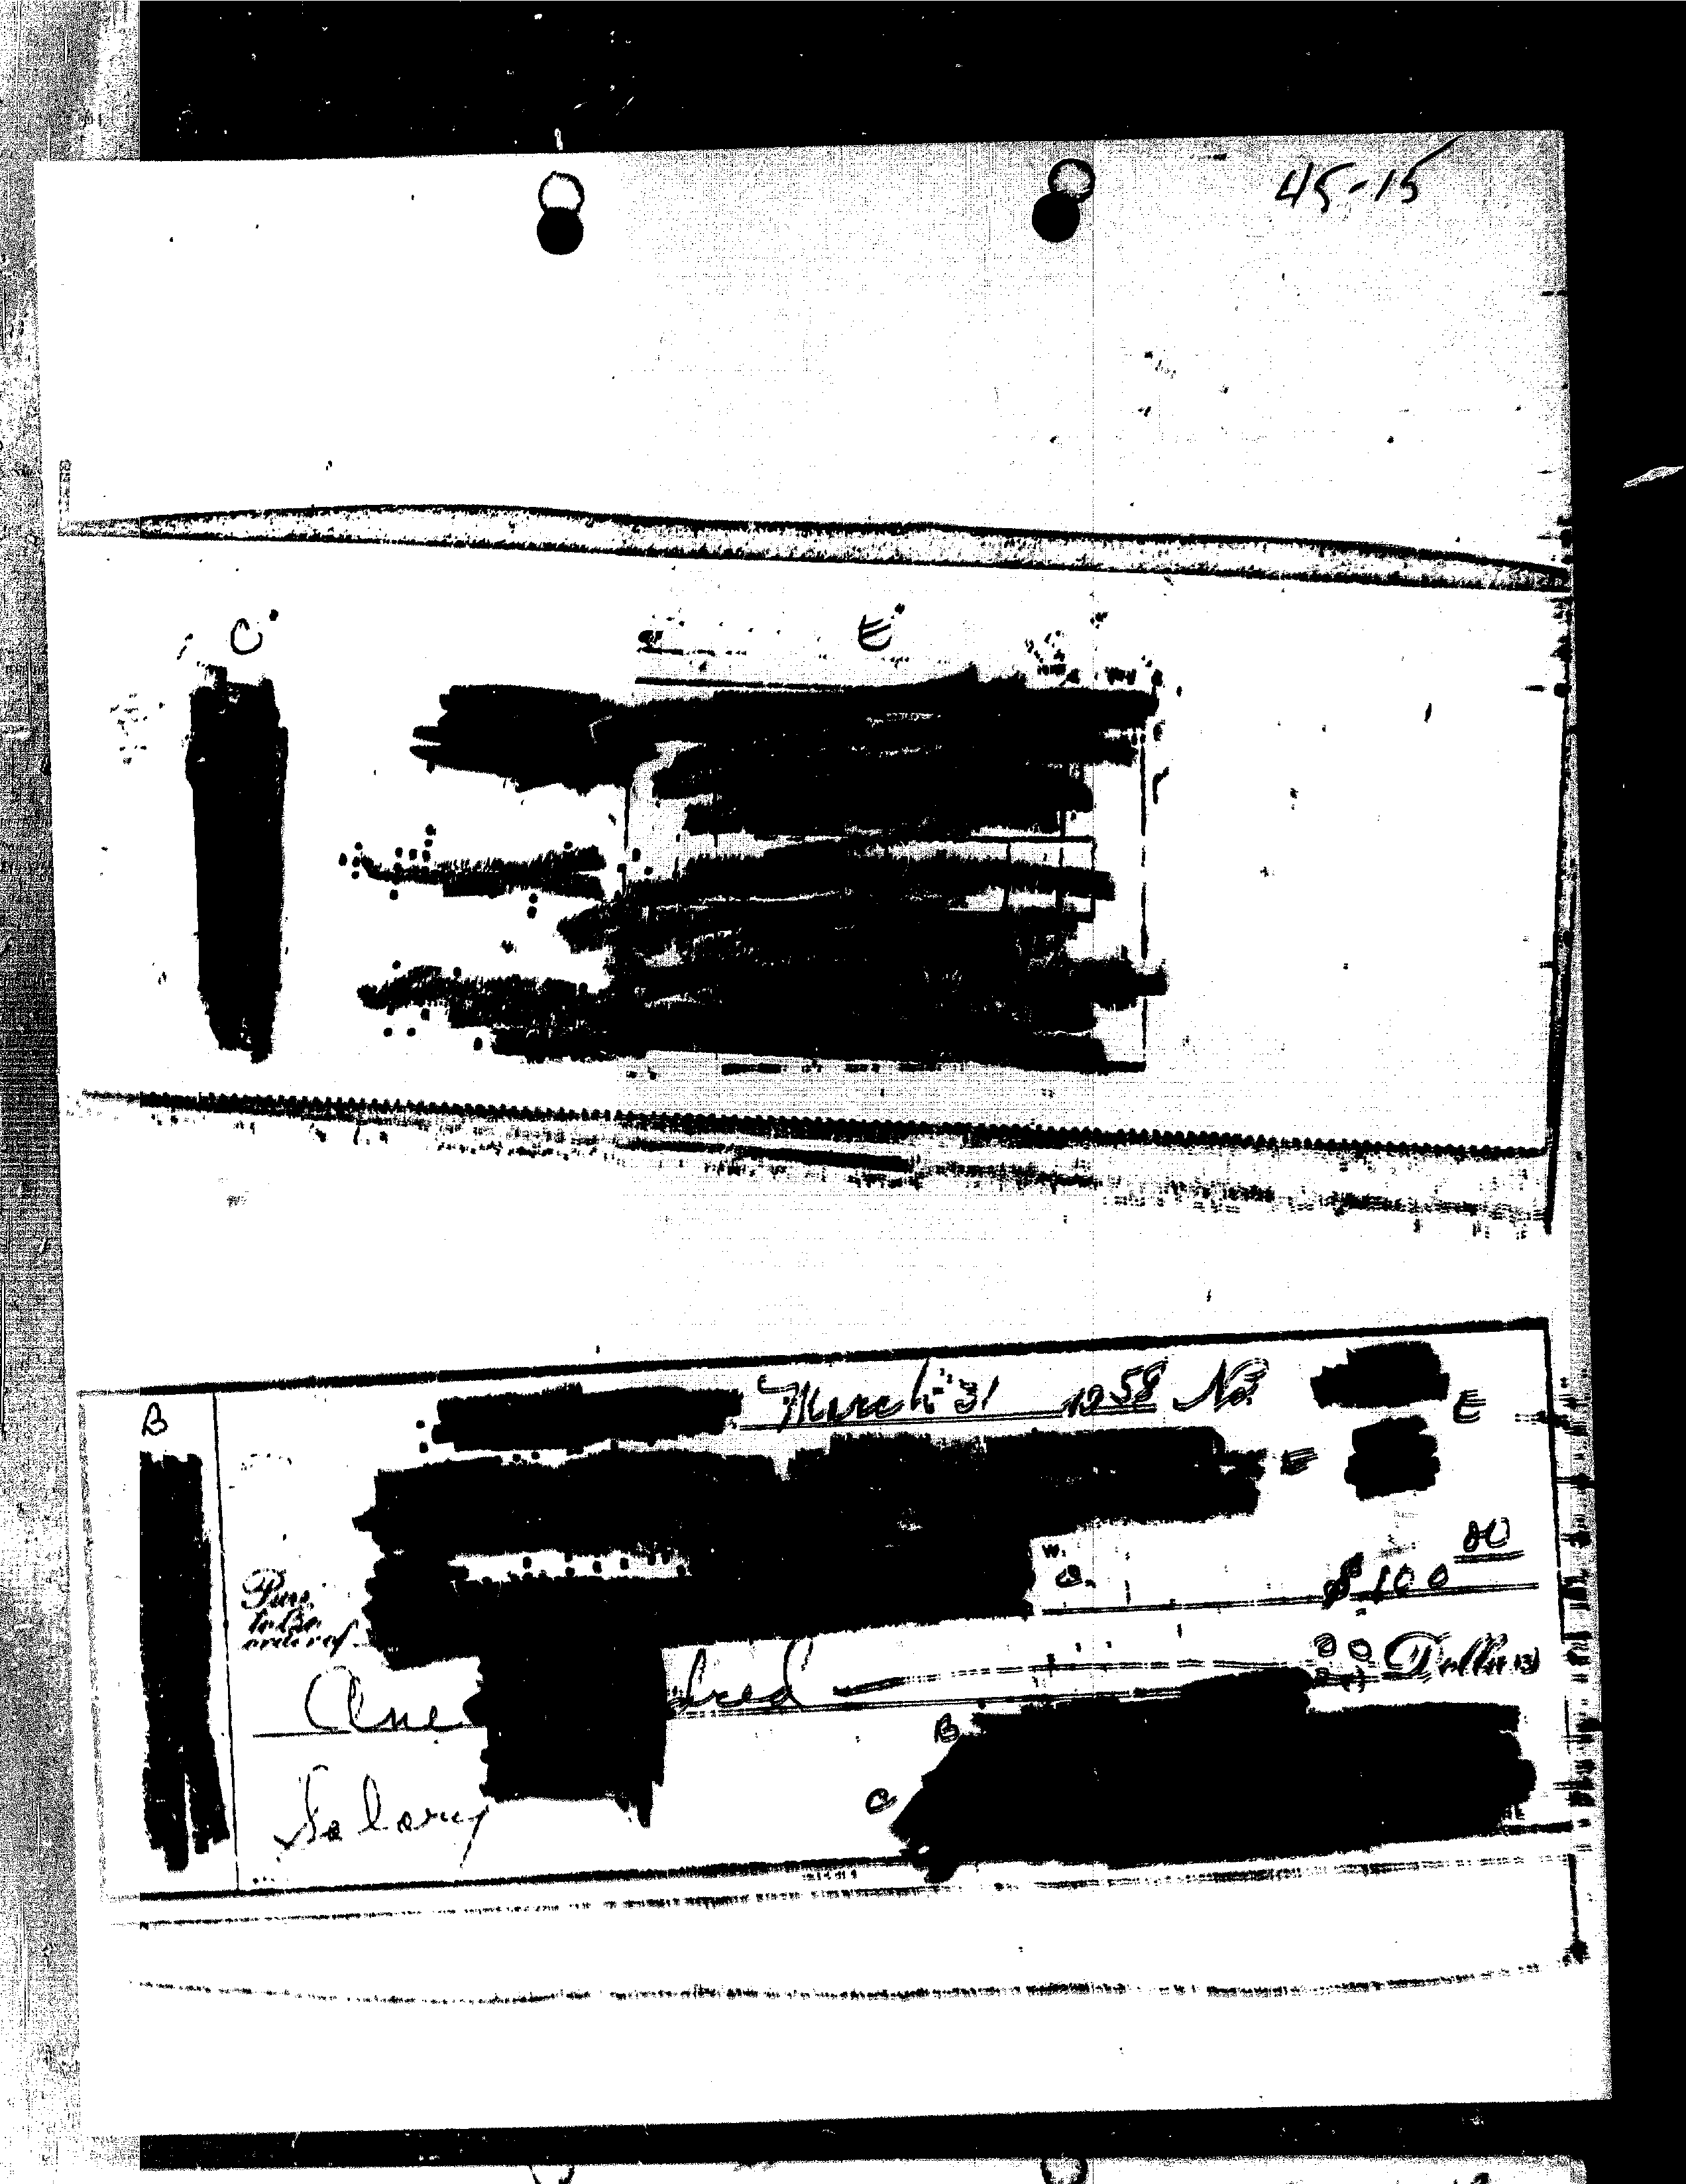 45-15
C
E
March 31 1958 No.
E
B
E
Pay
to the
order of
$ 100 00
One dred 00 Dollars
B
C
Salary